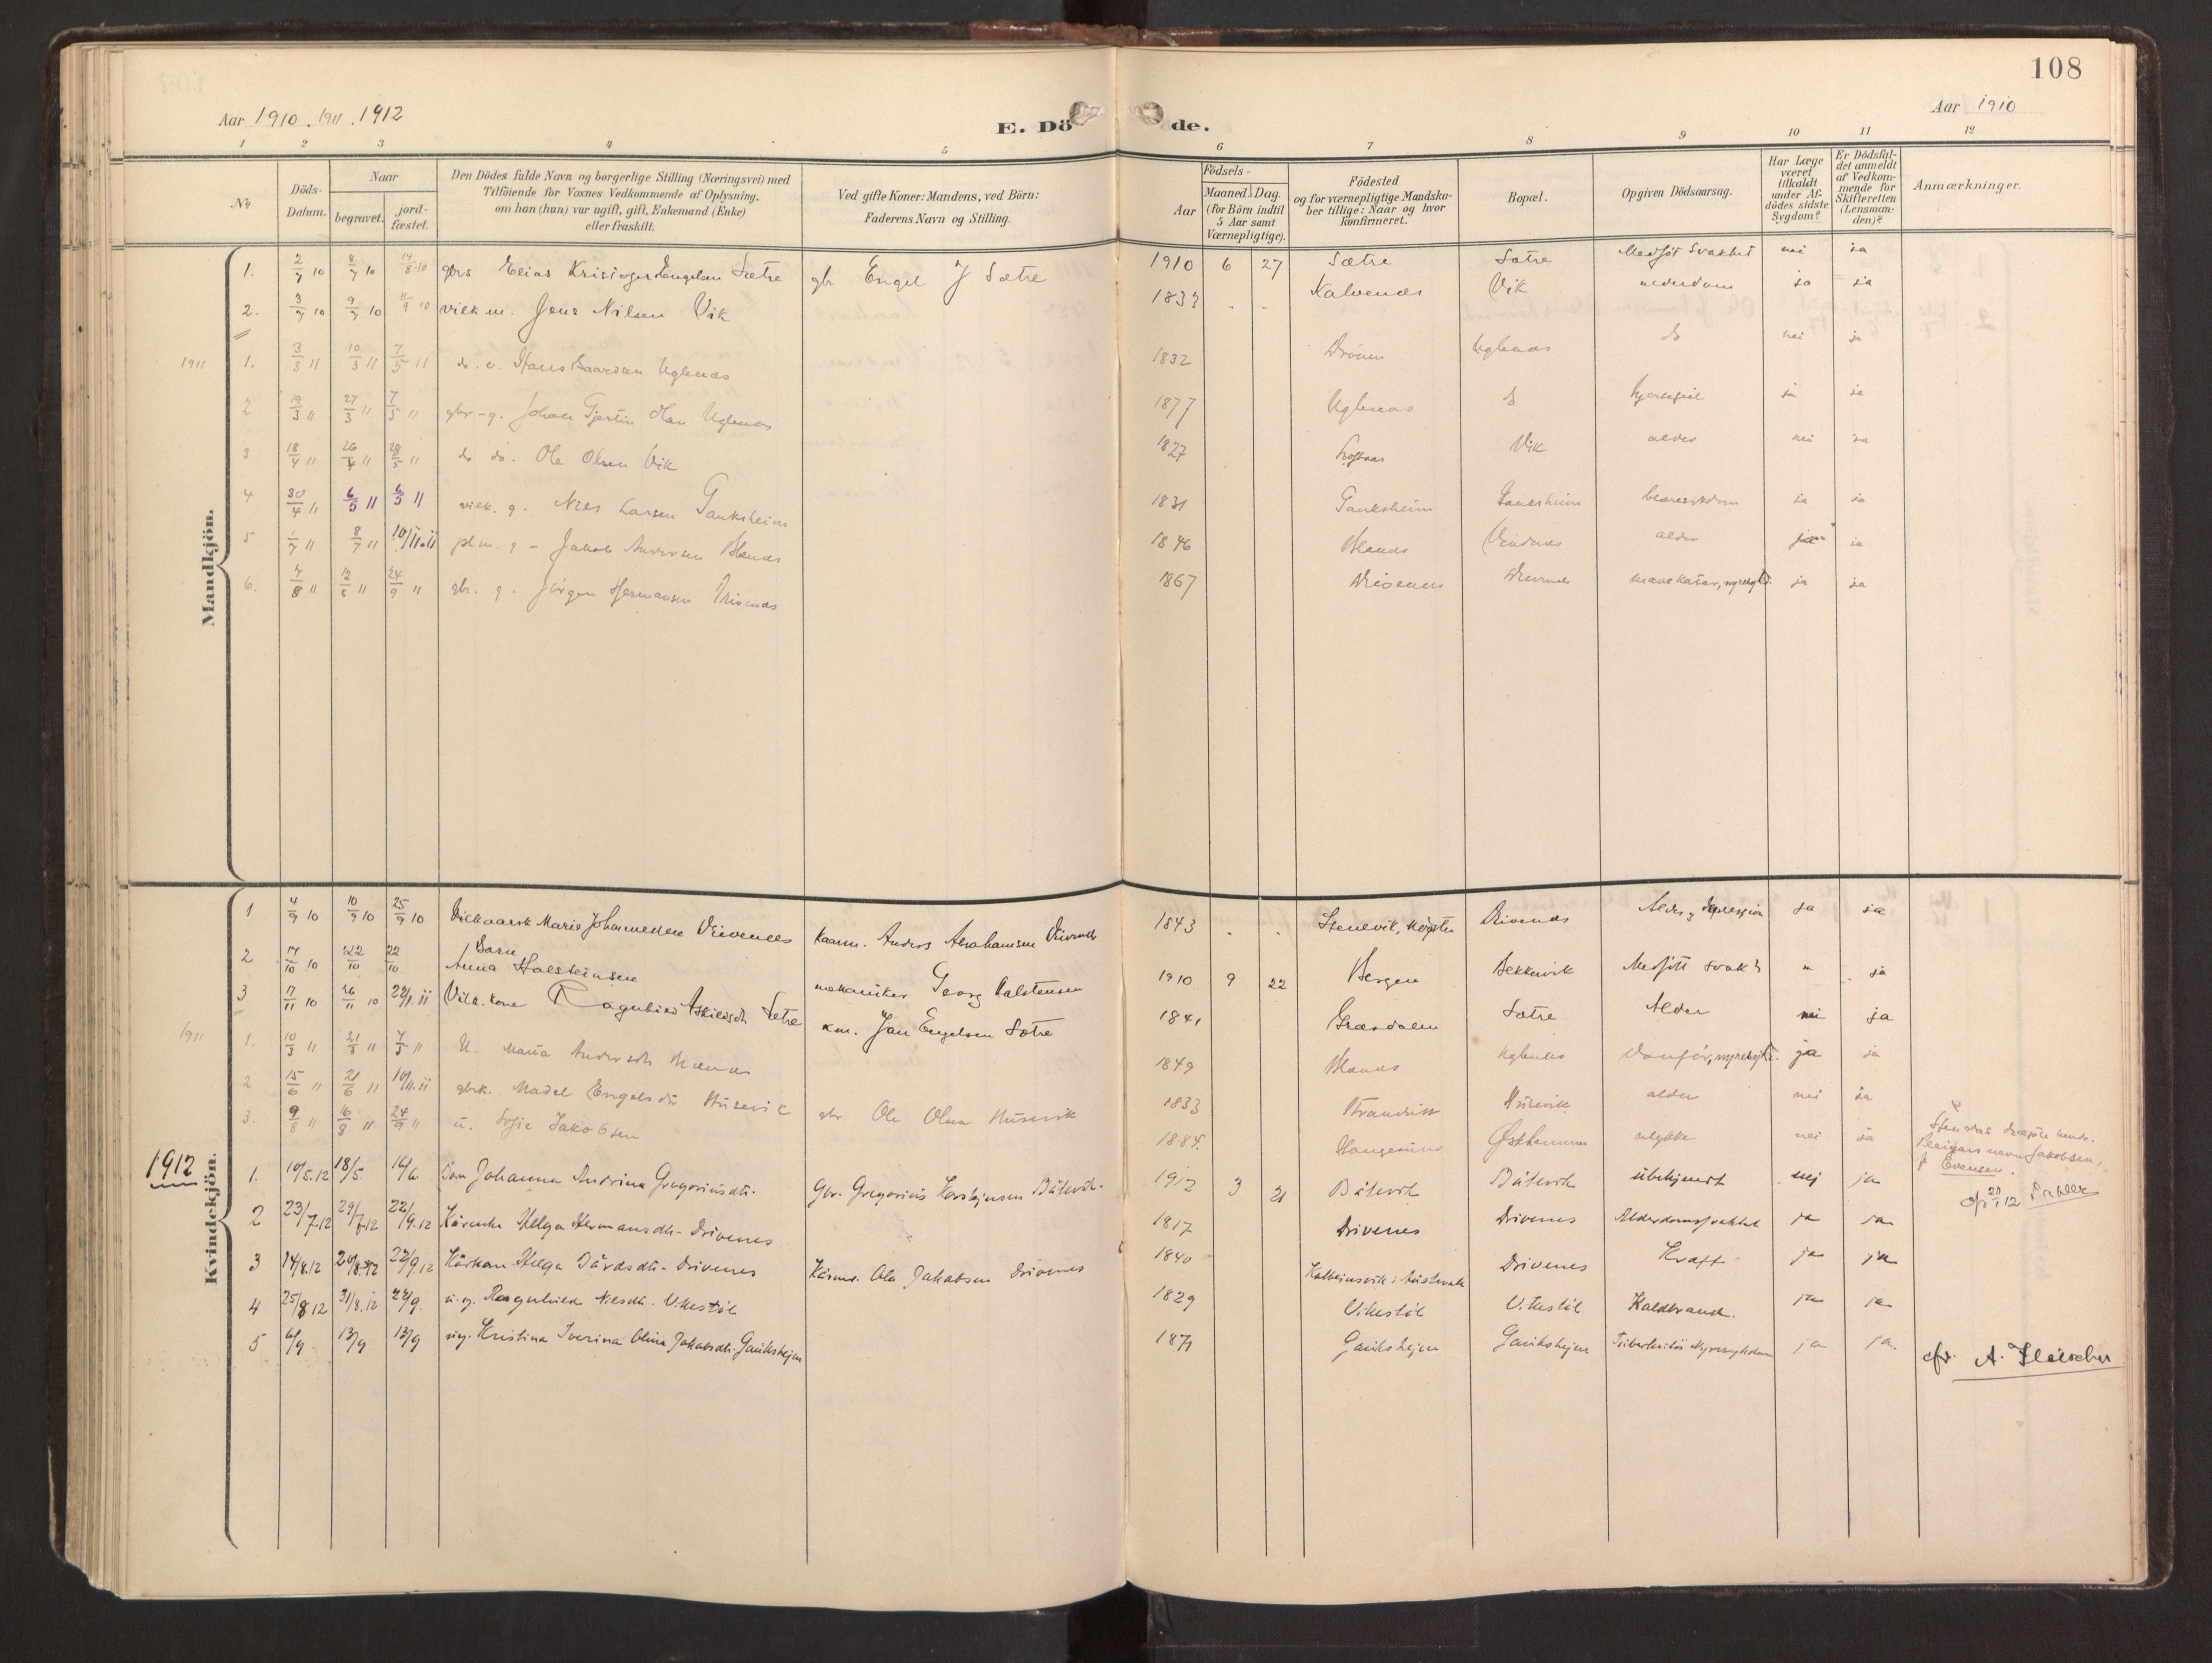 108
Aar 1910. 1911. 1912
E. Dö de.
Aar 1910
1 2 3 4 5 6 7 8 9 10 11 12
No
Döds-Datum.
Naar
begravet.
jord-fæstet.
Den Dödes fulde Navn og borgerlige Stilling (Næringsvei) med
Tilföiende for Voxnes Vedkommende af Oplysning,
om han (hun) var ugift, gift, Enkemand (Enke)
eller fraskilt.
Ved gifte Koner: Mandens, ved Börn:
Faderens Navn og Stilling.
Födsels-
Aar
Maaned. Dag.
(for Börn indtil
5 Aar samt
Værnepligtige).
Födested
og for værnepligtige Mandska-
ber tillige: Naar og hvor
konfirmeret.
Bopæl.
Opgiven Dödsaarsag.
Har Læge
været
tilkaldt
under Af-
dödes sidste
Sygdom?
Er Dödsfal-
det anmeldt
af Vedkom-
mende for
Skifteretten
(Lensman-
den)?
Anmærkninger.
Mandkjön.
1. 2/7 10 8/7 10 14/8 10 gbrs Elias Kristoger Engelsen Sætre gbr Engel J Sætre 1910 6 27 Sætre Sætre Medfört Svakhet nei ja
2. 3/7 10 9/7 10 11/9 10 vilk m. Jens Nilsen Vik 1833 - - Kalvenæs Vik alderdom ja ja
1911 1. 3/3 11 10/3 11 7/5 11 do. e. Hans Baardsen Uglenæs 1832 Drönen Uglenæs do nei ja
2 19/3 11 27/3 11 7/5 11 gbr-g. Johan Gjertin Olsen Uglenæs 1877 Uglenæs do hjertefeil ja ja
3 18/4 11 26/4 11 28/5 11 do do. Ole Olsen Vik 1827 Vik alder nei ja
4 30/4 11 6/5 11 6/5 11 vilk. g. Nils Larsen Gauksheim 1831 Gauksheim Gauksheim blæresykdom ja ja
5 1/7 11 8/7 11 10/11.11 plm. g - Jakob Andersen Blænæs 1846 Blænæs Vindnæs alder ja ja
6. 7/8 11 12/8 11 24/9 11 gbr. g. Jörgen Hermansen Drivenæs 1867 Drivenes Drivenes mavekatar, nyresykd. ja ja
Kvindekjön.
1 4/9 10 10/9 10 25/9 10 Vilkaarsk Marie Johannesen Drivenes kaarm. Anders Abrahamsen Drivenes 1843 - - Stenevik, Møgster Drivenæs Alder, depression ja ja
2 17/10 10 22/10 22/10 Barn Anna Halsteinsen mekaniker Georg Halstensen 1910 9 22 Bergen Bekkervik Medfött svakh " ja
3 17/11 10 26/11 10 22/1.11 Vilk. kone Ragnhild Askildsdt Sætre km. Jan Engelsen Sætre 1841 Græsdalen Sætre Alder nei ja
1911 1. 10/3 11 21/3 11 7/5 11 U. Maria Andersdt Blænæs 1849 Blænæs Uglenæs nyresykd. ja ja
2 15/6 11 21/6 11 10/11.11 gbrk. Madel Engelsdt Husevik gbr Ole Olsen Husevik 1833 Strandvik Husevik alder nei ja
3. 9/8 11 16/8 11 24/9 11 u. Sofie Jakobsen 1884. Haugesund Østhammer ulykke nei ja
Sten das dræpte hende.
Pleiejans navn Jakobsen,
f Evensen.
1912 1. 10/5.12 18/5 16/6 Barn Johanna Andrina Gregoriusdtr. Gbr. Gregorius Torsteinsen Båtevik. 1912 3 21 Båtevik Båtevik ubekjendt nej ja
2 23/7.12 29/7.12 22/9.12 Kårenke Helga Hermansdtr. Drivenes 1817 Drivenes Drivenes Alderdomssvakhet ja ja
3 14/8.12 20/8.12 22/9.12 Kårkone Helga Dårdsdtr. Drivenes Kårmd. Ola Jakobsen Drivenes 1840 Kalveinsvik i Austevold Drivenes Kræft ja ja
4 25/8 12 31/8.12 22/9. u.g. Ragnhilda Nilsdtr. Vikestöl 1829 Vikestöl Vikestöl Koldbrand. ja ja
5 6/9 13/9 13/9 ug. Kristina Iverina Olina Jakobsdtr. Gauksheim 1879 Gaukshejm Gaukshejm Tuberkulös Nyresykdom ja ja.
cfr. A. Fleischer